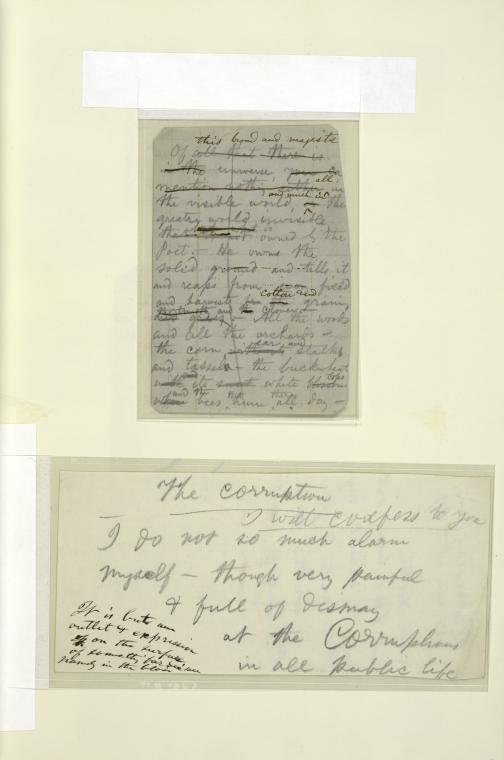 this broad and majestic
Of all that there is
in the universe,
all,
the visible world, and much in the
greater world invisible
is owned by the
Poet.— He owns the
solid ground and tills it
and reaps from field
and harvests cotton and grain,
and clover
All the woods
and all the orchards—
the corn ear, and stalks
and tassels— the buckwheat
its white tops
and the bees that hum there all day—
The corruption
I will confess to you
— I do not so much alarm
myself — though very painful
& full of dismay
at the Corruptions
in all public life
It is but an
outlet & expression
on the surface,
of something far deeper
in the blood